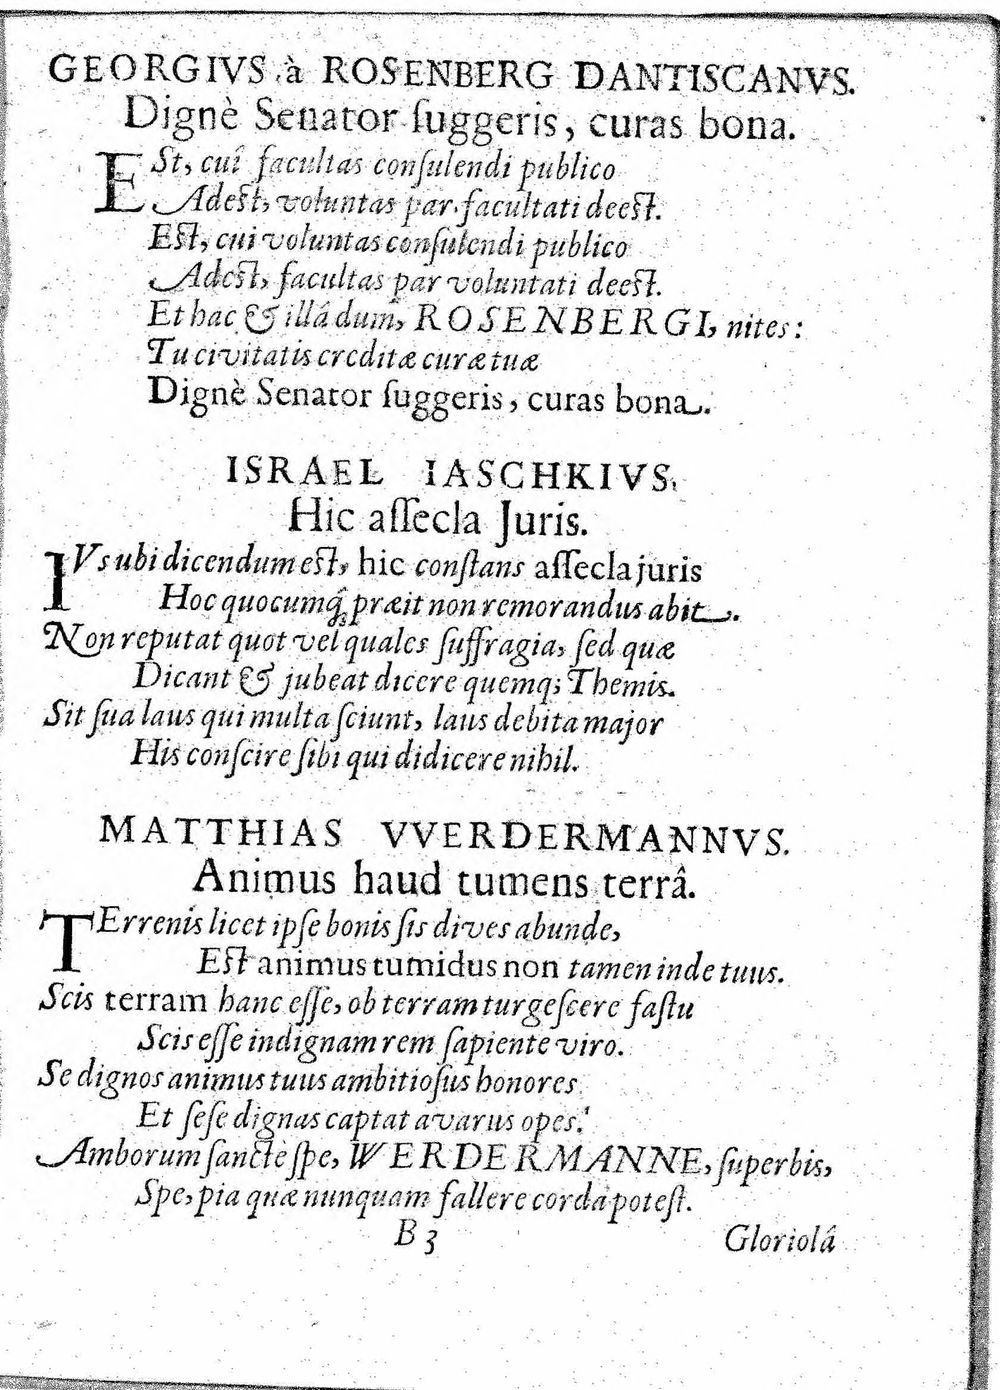 GEORGIVS à ROSENBERG DANTISCANVS.
Dignè Senator ſuggeris, curas bona.
ESt, cuî facultas conſulendi publico
Adeſt, voluntas par facultati deeſt.
Eſt, cui voluntas conſulendi publico
Adeſt, facultas par voluntati deeſt.
Et hac & illâ dum, ROSENBERGI, nites:
Tu civitatis creditæ curæ tuæ
Dignè Senator ſuggeris, curas bona.
ISRAEL IASCHKIVS.
Hic aſſecla Juris.
IVs ubi dicendum eſt, hic conſtans aſſecla juris
Hoc quocumq; præit non remorandus abit.
Non reputat quot vel quales ſuffragia, ſed quæ
Dicant & jubeat dicere quemq; Themis.
Sit ſua laus qui multa ſciunt, laus debita major
His conſcire ſibi qui didicere nihil.
MATTHIAS VVERDERMANNVS.
Animus haud tumens terrâ.
TErrenis licet ipſe bonis ſis dives abunde,
Eſt animus tumidus non tamen inde tuus.
Scis terram hanc eſſe, ob terram turgeſcere faſtu
Scis eſſe indignam rem ſapiente viro.
Se dignos animus tuus ambitioſus honores
Et ſeſe dignas captat avarus opes:
Amborum ſanctè ſpe, WERDERMANNE, ſuperbis,
Spe, pia quæ nunquam fallere corda poteſt.
B 3
Gloriolâ